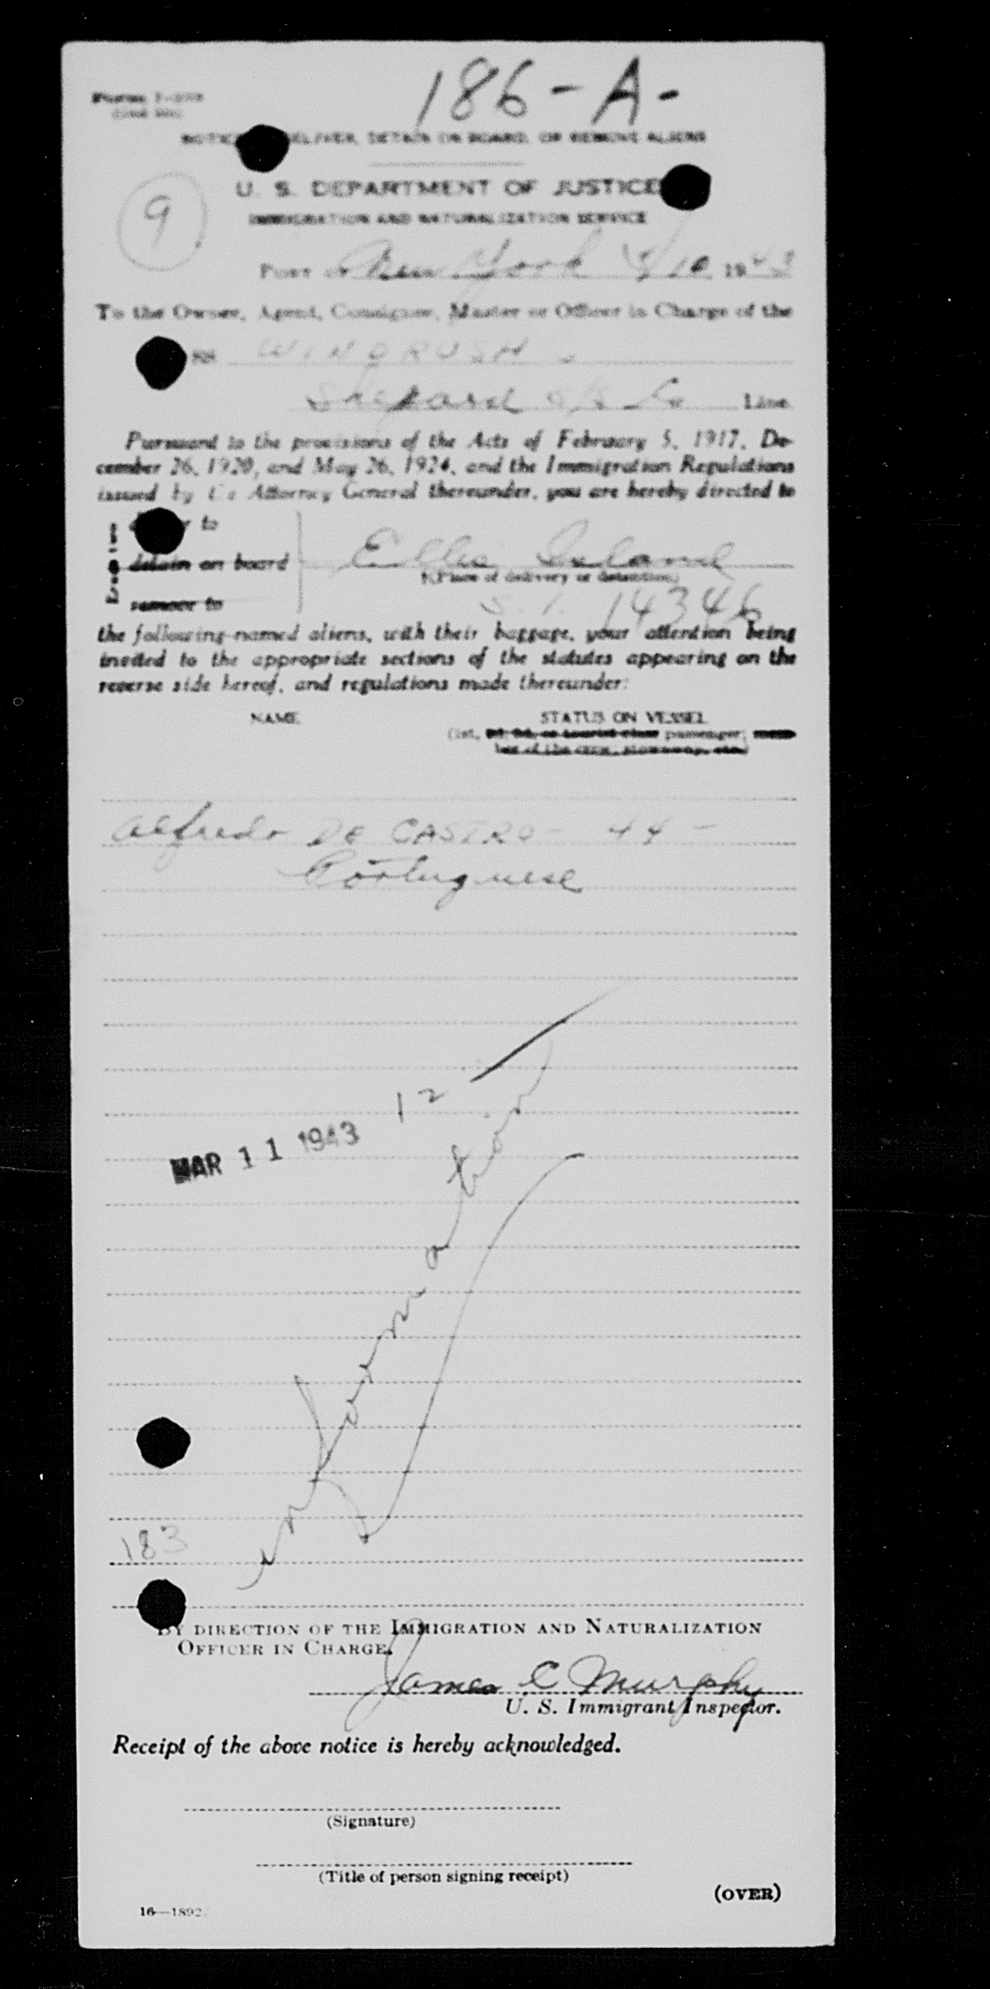 186-A-
Form I-259
NOTICE DELIVER, DETAIN ON BOARD, OR REMOVE ALIENS
U. S. DEPARTMENT OF JUSTICE
9
IMMIGRATION AND NATURALIZATION SERVICE
Port of New York 3/10 1943
To the Owner, Agent, Consignee, Master or Officer in Charge of the
SS WINDRUSH
Shepard S/S Co Line
Pursuant to the provisions of the Acts of February 5, 1917, De-
cember 26, 1920, and May 26, 1924, and the Immigration Regulations
issued by the Attorney General thereunder, you are hereby directed to
to
detain on board Ellis Island
(Place of delivery or detention)
remove to S. I. 14346
the following-named aliens, with their baggage, your attention being
invited to the appropriate sections of the statutes appearing on the
reverse side hereof, and regulations made thereunder:
NAME STATUS ON VESSEL
(1st, 2d, 3d, or tourist class passenger; mem-
ber of the crew, stowaway, etc.)
Alfredo DE CASTRO - 44 -
Portuguese
12
MAR 11 1943
information
183
BY DIRECTION OF THE IMMIGRATION AND NATURALIZATION
OFFICER IN CHARGE.
James C Murphy
U. S. Immigrant Inspector.
Receipt of the above notice is hereby acknowledged.
(Signature)
(Title of person signing receipt)
(OVER)
16—1892